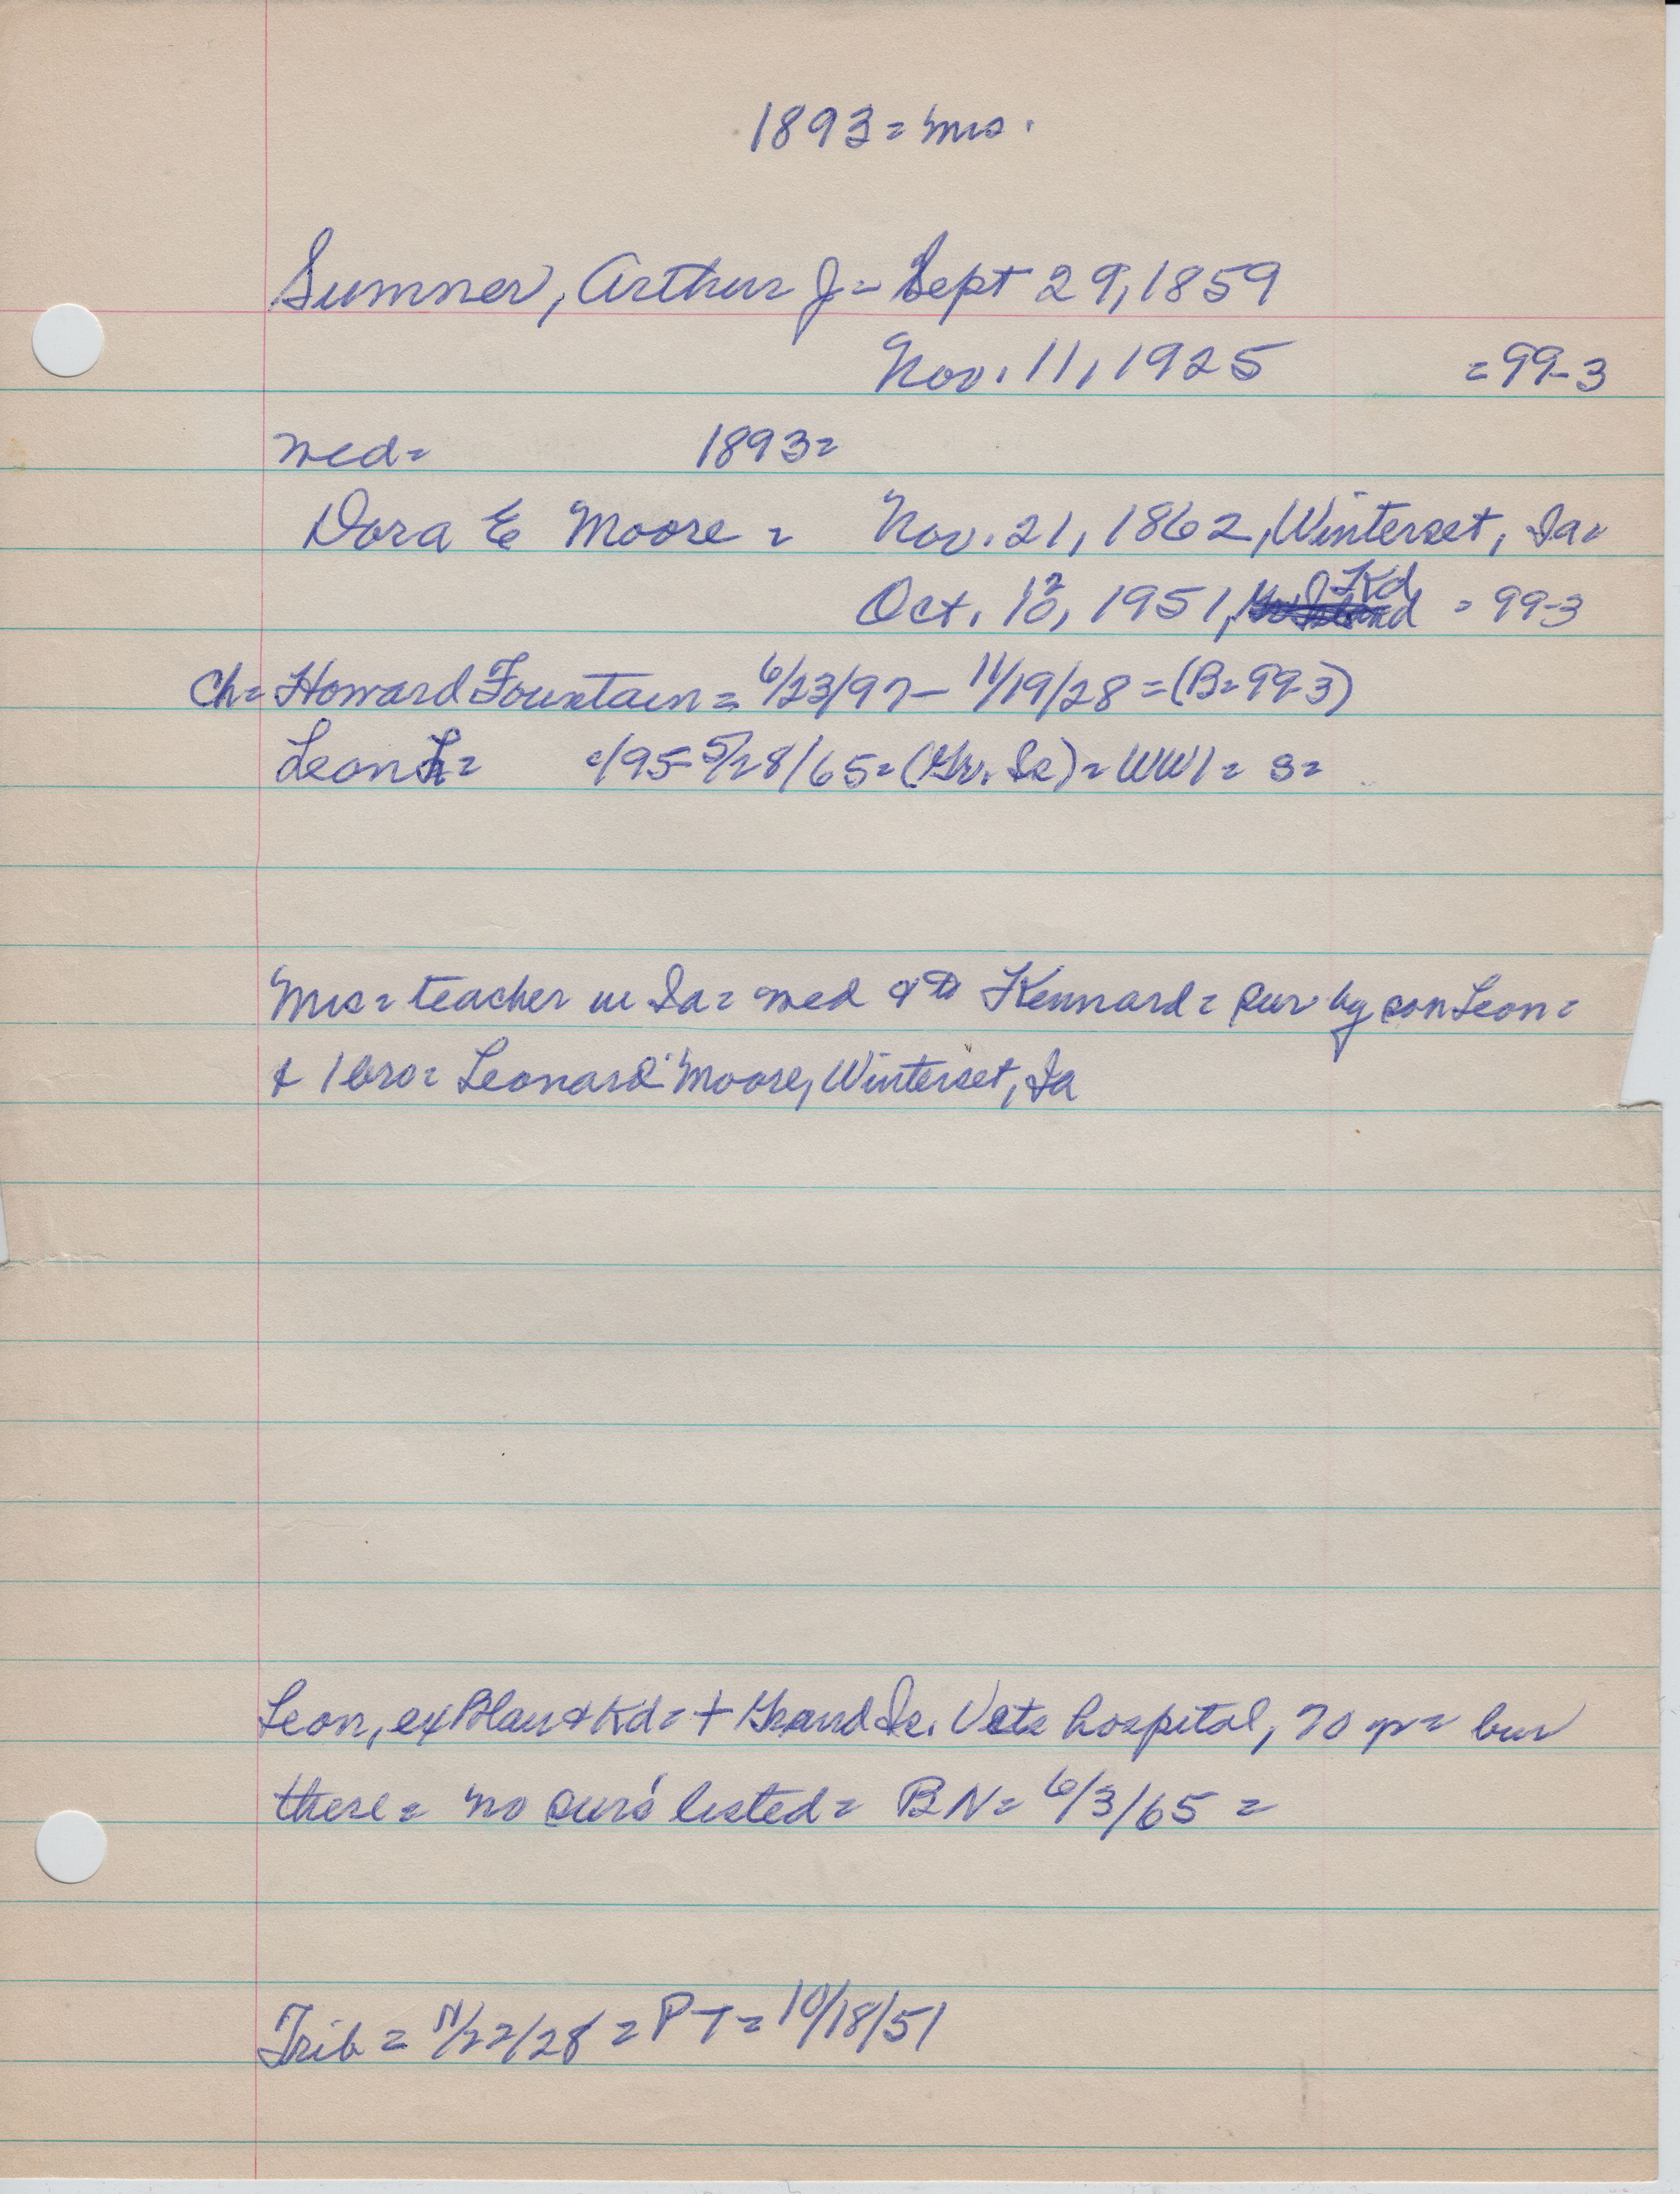 1893 = Mrs.
Sumner, Arthur J = Sept 29, 1859
Nov. 11, 1925 = 99-3
med = 1893 =
Dora E Moore = Nov. 21, 1862, Winterset, Ia =
Oct. 12, 1951, Kd = 99-3
Ch = Howard Fountain = 6/23/97 - 11/19/28 = (B = 99-3)
Leon L = c/95 - 5/28/65 = (Gr. Is) = WW1 = s =
Mrs = teacher in Ia = med & to Kennard = sur by son Leon =
& 1 bro = Leonard Moore, Winterset, Ia
Leon, ex Blair & Kd = + Grand Is. Vets hospital, 70 yr = bur
there = no surs listed = BN = 6/3/65 =
Trib = 11/22/28 = PT = 10/18/51